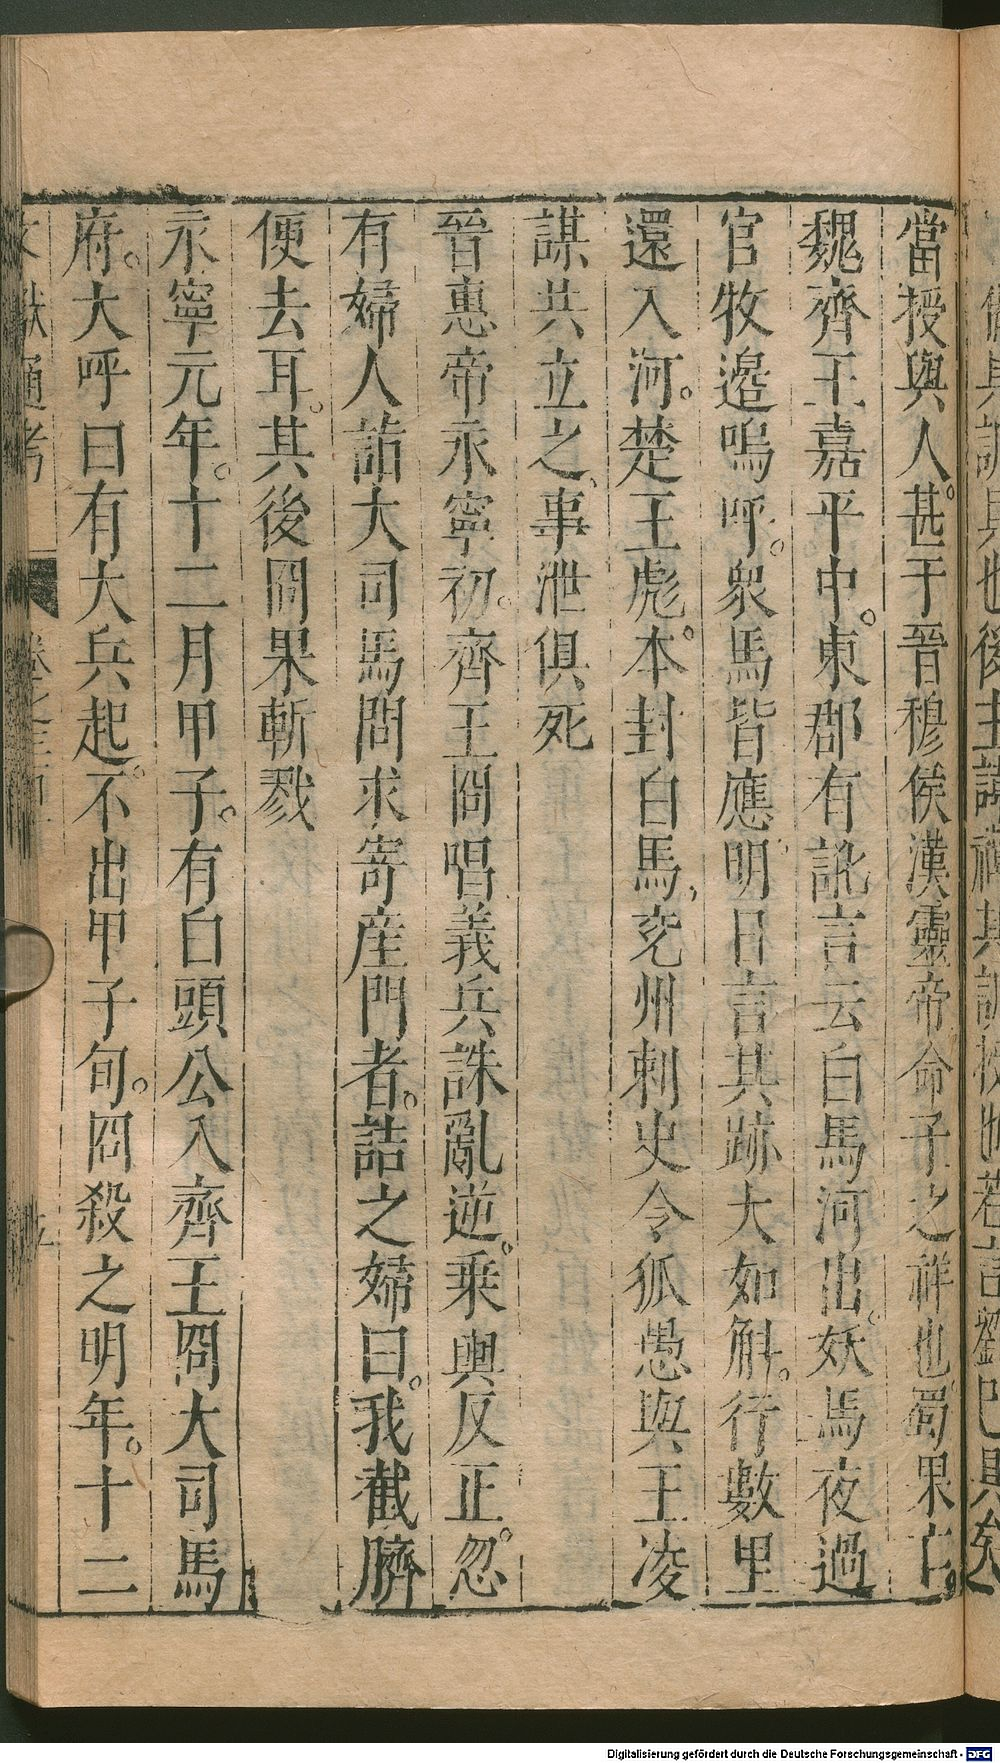 備其訓具也後主諱禪其訓授也若言劉已具矣
當授與人甚于晉穆侯漢靈帝命子之祥也蜀果亡
魏齊王嘉平中東郡有訛言云白馬河出妖馬夜過
官牧邉嗚呼衆馬皆應明日言其跡大如斛行數里
還入河楚王彪本封白馬兖州刺史令狐愚與王凌
謀共立之事泄俱死
晉惠帝永寧初齊王冏唱義兵誅亂逆乗輿反正忽
有婦人詣大司馬問求寄産門者詰之婦曰我截臍
便去耳其後冏果斬戮
永寧元年十二月甲子有白頭公入齊王冏大司馬
府大呼曰有大兵起不出甲子旬冏殺之明年十二
文獻通考 卷之三百 五
Digitalisierung gefördert durch die Deutsche Forschungsgemeinschaft - DFG